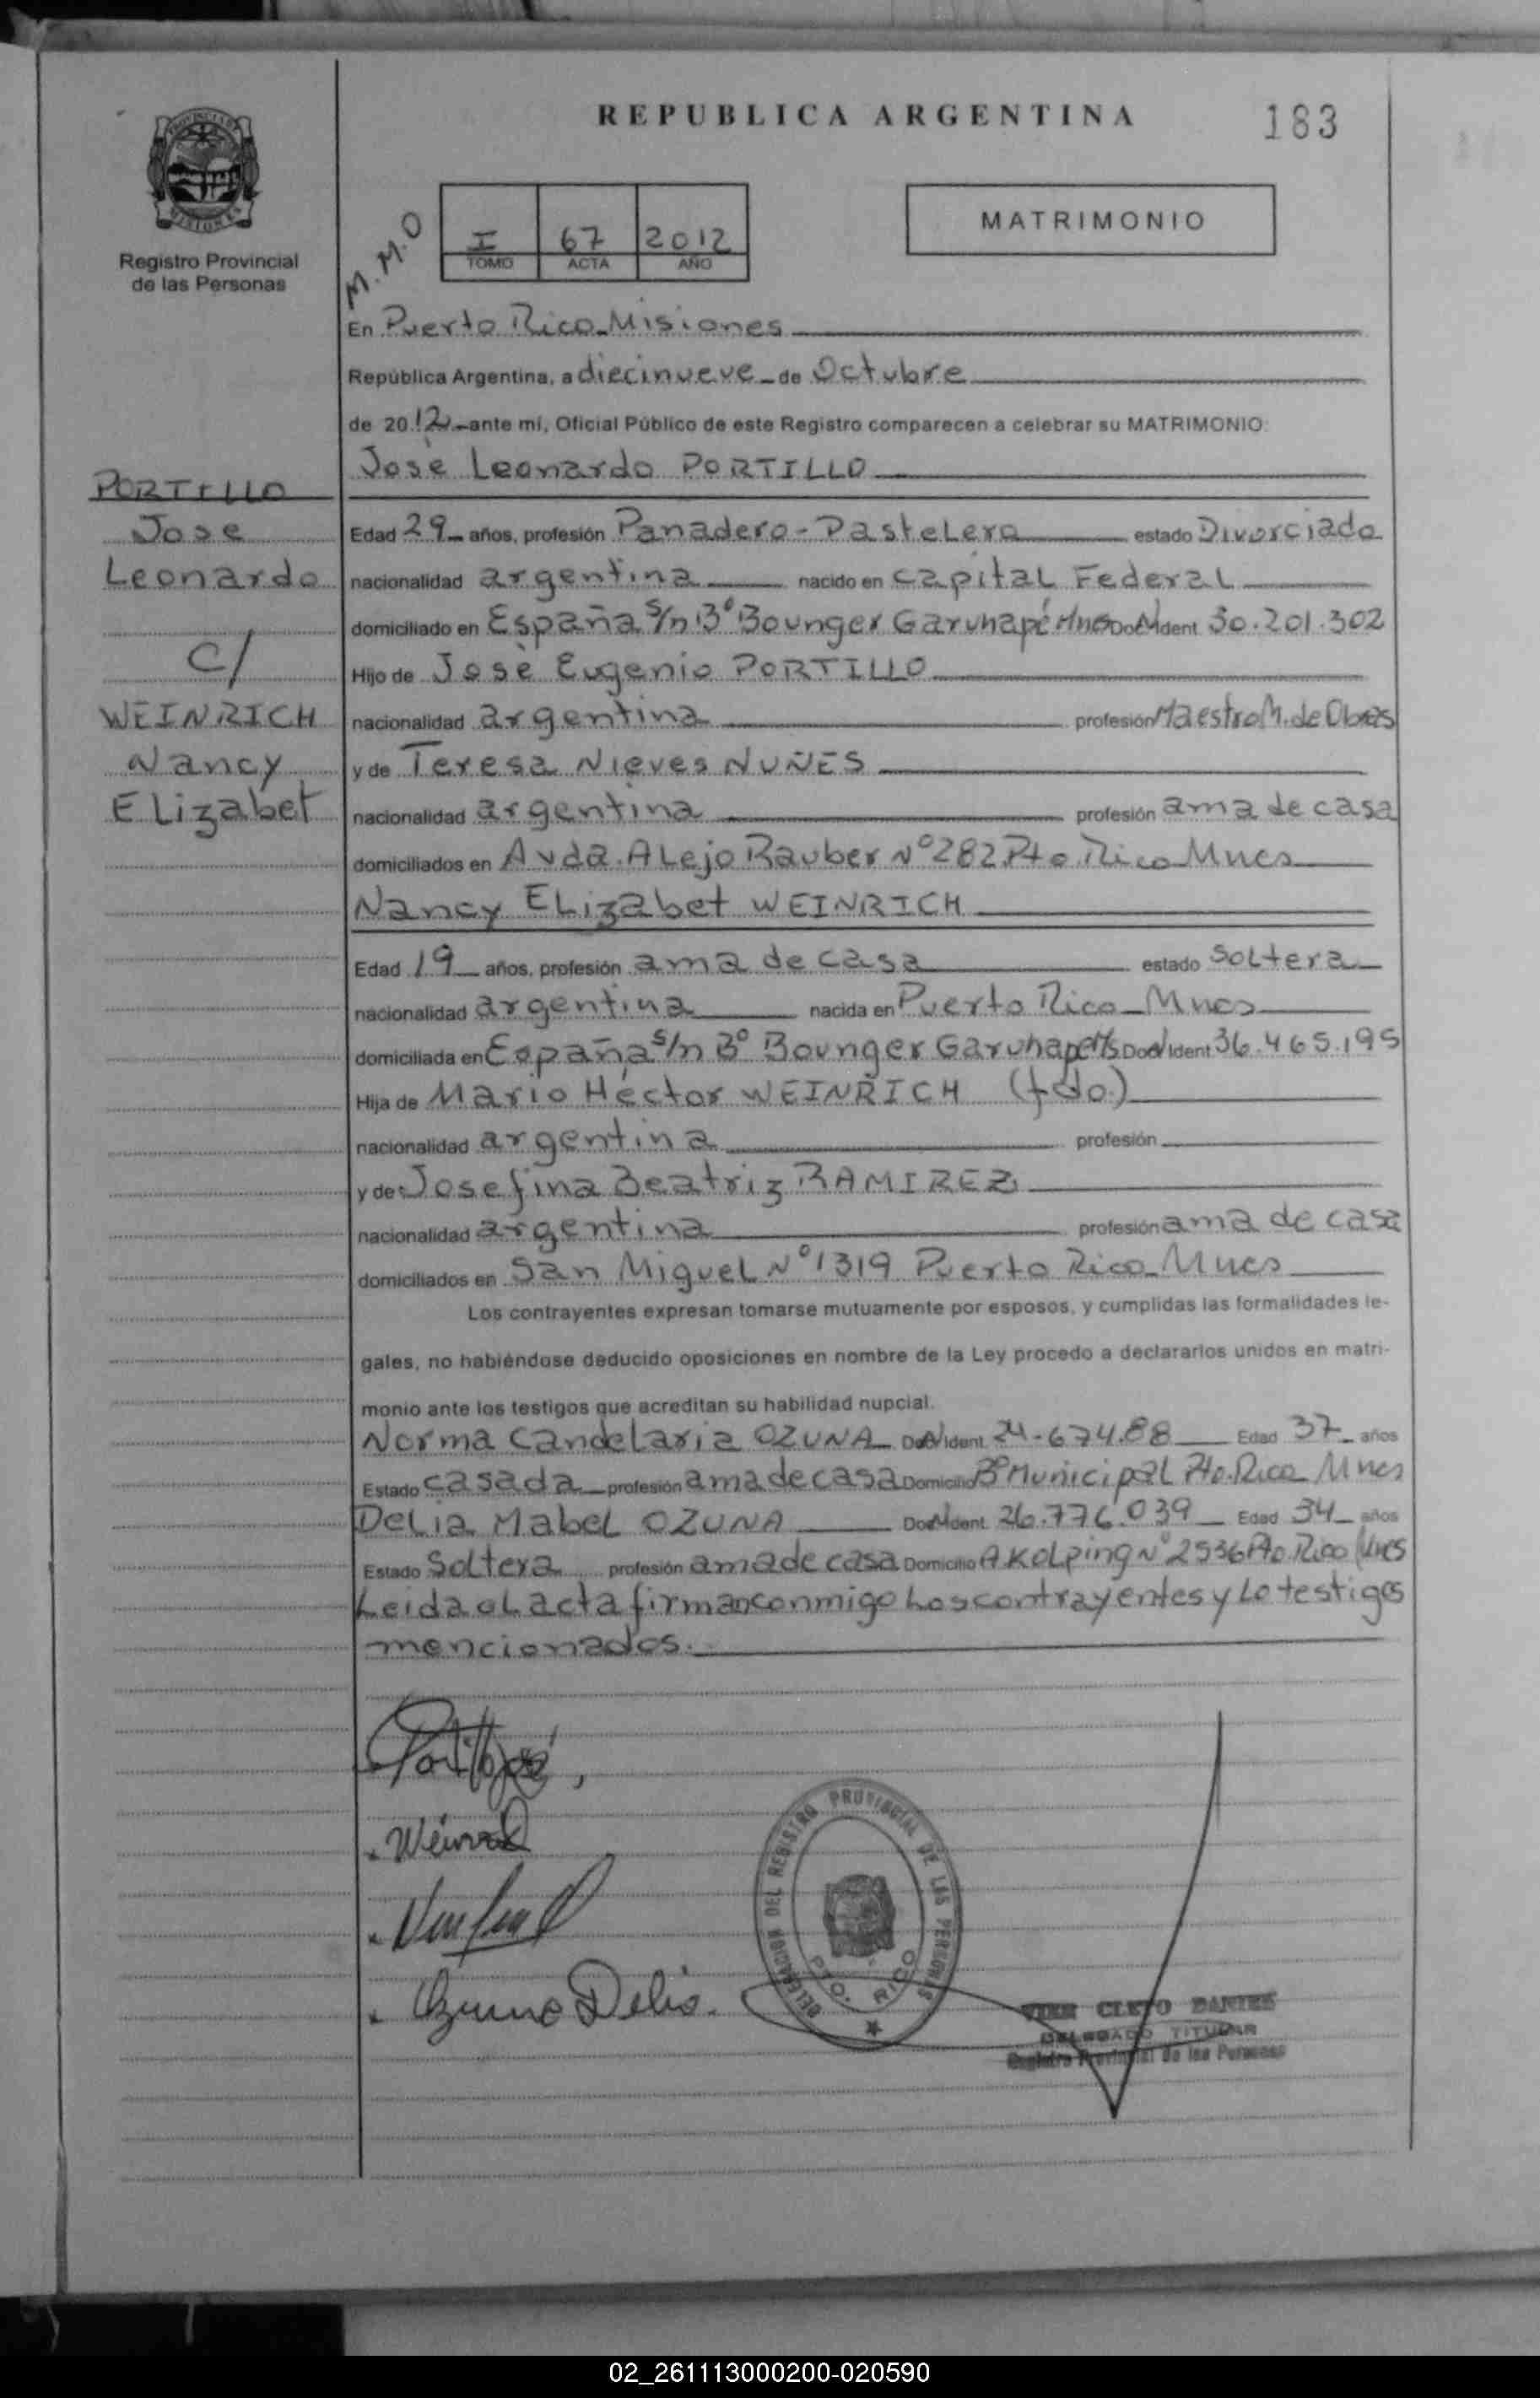 REPUBLICA ARGENTINA
183
PROVINCIA DE
MISIONES
Registro Provincial
de las Personas
M.M.O
I 67 2012
TOMO ACTA AÑO
MATRIMONIO
En Puerto Rico-Misiones
República Argentina, a diecinueve de Octubre
de 2012 ante mí, Oficial Público de este Registro comparecen a celebrar su MATRIMONIO:
José Leonardo PORTILLO
PORTILLO
Jose
Leonardo
C/
WEINRICH
Nancy
Elizabet
Edad 29 años, profesión Panadero-Pastelero estado Divorciado
nacionalidad argentina nacido en Capital Federal
domiciliado en España S/n Bº Bounger Garuhapé Mnes Doc. Ident 30.201.302
Hijo de José Eugenio PORTILLO
nacionalidad argentina profesión Maestro M. de Obras
y de Teresa Nieves NUÑES
nacionalidad argentina profesión ama de casa
domiciliados en Avda. Alejo Rauber Nº 282 Pto Rico Mnes
Nancy Elizabet WEINRICH
Edad 19 años, profesión ama de casa estado Soltera
nacionalidad argentina nacida en Puerto Rico-Mnes
domiciliada en España S/n Bº Bounger Garuhapé Ms Doc. Ident 36.465.195
Hija de Mario Héctor WEINRICH (fdo.)
nacionalidad argentina profesión
y de Josefina Beatriz RAMIREZ
nacionalidad argentina profesión ama de casa
domiciliados en San Miguel Nº 1319 Puerto Rico-Mnes
Los contrayentes expresan tomarse mutuamente por esposos, y cumplidas las formalidades le-
gales, no habiéndose deducido oposiciones en nombre de la Ley procedo a declararlos unidos en matri-
monio ante los testigos que acreditan su habilidad nupcial.
Norma Candelaria OZUNA Ident. 24.674.88 Edad 37 años
Estado casada profesión ama de casa Domicilio Bº Municipal Pto. Rico Mnes
Delia Mabel OZUNA Ident. 26.776.039 Edad 34 años
Estado Soltera profesión ama de casa Domicilio A Kolping Nº 2536 Pto. Rico Mnes
Leida el acta firman conmigo los contrayentes y lo testigos
mencionados.
Portillo José
Ozuna Delia.
DELEGACION DEL REGISTRO PROVINCIAL DE LAS PERSONAS
PTO. RICO
CLETO
DELEGADO TITULAR
Registro Provincial de las Personas
02_261113000200-020590